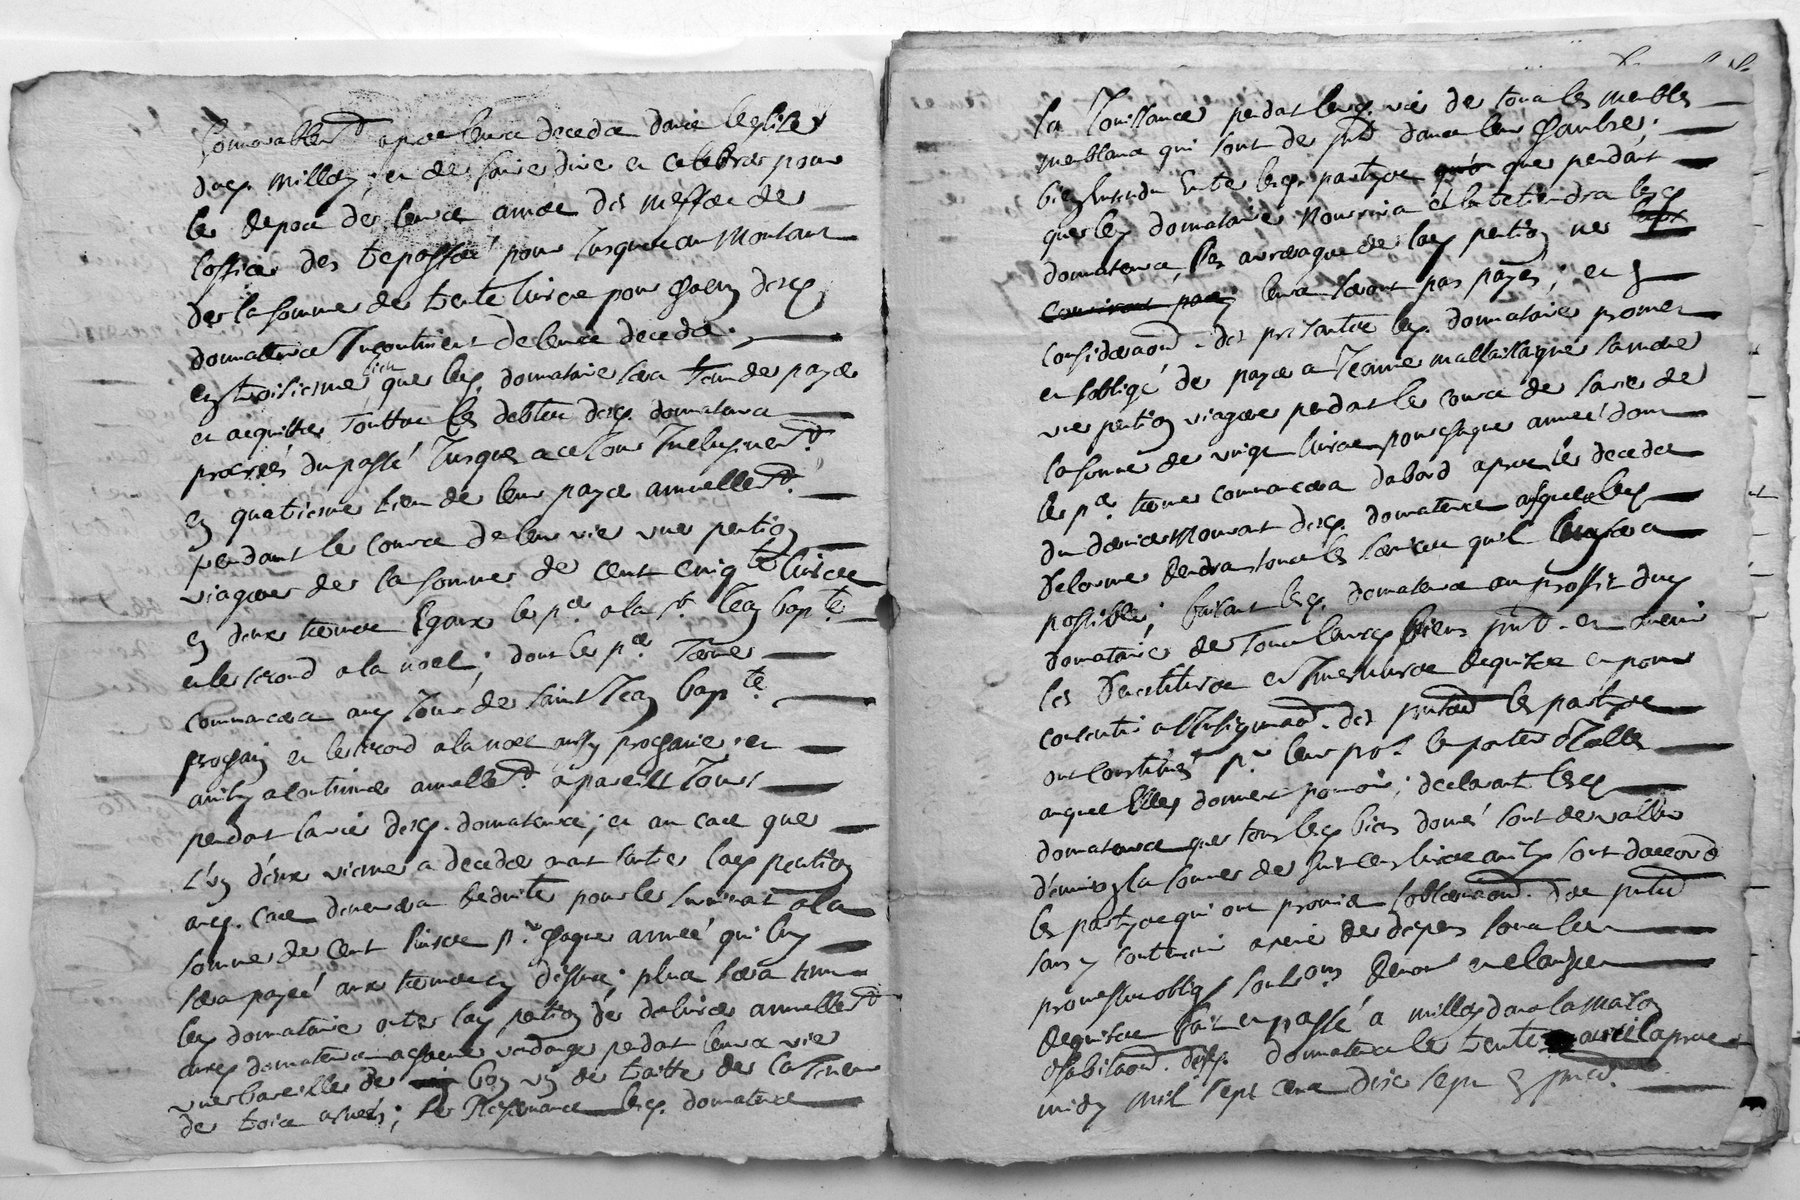 honnorablemt apres leurs deceds dans leglise
dud. millau, et de faire dire et celebrer pour
le repos de leurs ames des messes de
loffice des trepassés pour jusques au montant
de la somme de trente livres pour chacun desd
donnateurs incontinent de leurs deceds.
en troisieme lieu que led. donnataire sera tenu de payer
et acquitter touttes les debtes desd. donnateurs
procreés du passé jusques a ce jour inclusivemt.
en quatrieme lieu de leur payer annuellemt.
pendant le cours de leur vie une pention
viagere de la somme de cent cinqte livres
en deux termes egaux le pr. a la st. jean bapte.
et le second a la noel; dont le pr. terme
commencera au jour de saint jean bapte.
prochain et le second a la noel aussy prochaine et
ainsy a continuer annuellemt. a pareils jours
pendant la vie desd. donnateurs; et au cas que
l'un d'eux vienne a deceder avant l'autre lad pention
aud. cas demeurera reduitte pour le survivant a la
somme de cent livres pr. chaque année qui luy
sera payée aux termes cy dessus; plus sera tenu
led donnataire outre lad pention de delivrer annuellemt
auxd donnateurs a chacune vendange pendant leurs vie
une barrique de bon vin de
de trois années; se reservant lesd. donnateurs
la jouissance pendant leurd. vie de tous les meubles
meublans qui sont de pnt dans leur chambre;
bien entendu entre lesd. partyes que pendant
que led donnataire nourrira et entretiendra lesd
donnateurs, les arrerages de lad pention ne
leurs seront pas payés; et en
consideraon. des presantes led. donnataire promet
et s'oblige de payer a Jeanne mallassagne sa mere
une pention viagere pendant le cours de sa vie de
la somme de vingt livres pour chaque année dont
le pr. terme commencera dabord apres le deceds
du dernier mourant desd. donnateurs auxquels led
Delorme rendra tous les services qu'il luy sera
possible; faisant lesd. donnateurs au proffit dud
donnataire de tous leursd biens pnts. et
les devestitures et investitures requises et pour
consentir a l'insinuaon. des presantes les partyes
ont constitué pr. leur pror. le porteur d'icelles
auquel elles donnent pouvoir; declarant lesd
donnateurs que tous lesd biens donnés sont de valleur
d'environ la somme de huit cens livres ainsy sont d'accord
les partyes qui ont promis l'observaon. des presantes
sans y contrevenir a peine de depens sous leurs
promesses oblig soubmons renons et clauses
requises fait et passé a millau dans la maison
d'habitaon. desd. donnateurs le trente avril apres
midy mil sept cens dix sept en pnce.